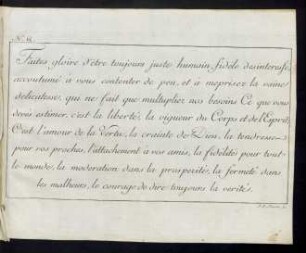 Faites gloire d'être toujours juste humain, fidele desinteressé,
accoutumé à vous contenter de peu, et à mepriser la vaine
delicatesse, qui ne fait que multiplier nos besoins Ce que vous
devés estimer, c'est la liberté, la vigueur du Corps et de l'Esprit,
C'est l'amour de la Vertu, la crainte de Dieu, la tendresse
pour vos proches, l'attachement à vos amis, la fidelité pour tout
le monde, la moderation dans la prosperité, la fermeté dans
les malheurs, le courage de dire toujours la verité.